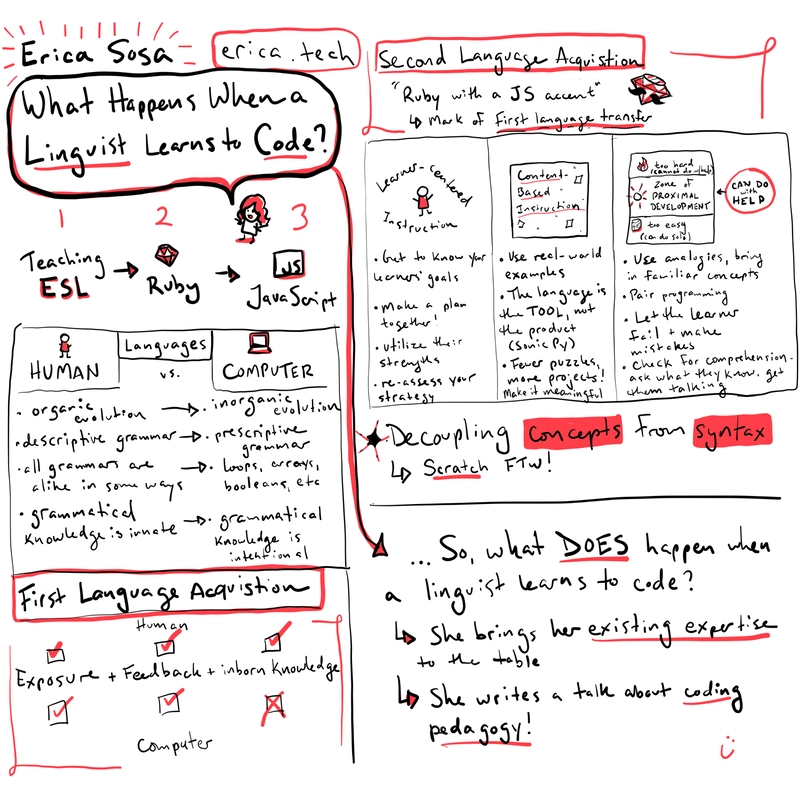 Erica Sosa
erica.tech
What Happens When a
Linguist Learns to Code?
1 2 3
Teaching
ESL
Ruby
JS
JavaScript
HUMAN
Languages
vs.
COMPUTER
• organic evolution → inorganic evolution
• descriptive grammar → prescriptive grammar
• all grammars are
alike in some ways → loops, arrays,
booleans, etc
• grammatical
knowledge is innate → grammatical
knowledge is
intentional
First Language Acquistion
Human
Exposure + Feedback + inborn knowledge
Computer
Second Language Acquistion
"Ruby with a JS accent"
↳ Mark of first language transfer
Learner-centered
Instruction
• Get to know your
learners' goals
• Make a plan
together!
• utilize their
strengths
• re-assess your
strategy
Content-
Based
Instruction
• Use real-world
examples
• The language is
the TOOL, not
the product
(Sonic Py)
• Fewer puzzles,
more projects!
Make it meaningful
too hard
(cannot do w/help)
ZONE OF
PROXIMAL
DEVELOPMENT
too easy
(can do solo)
CAN DO
with
HELP
• Use analogies, bring
in familiar concepts
• Pair programming
• Let the learner
fail + make
mistakes
• Check for comprehension-
ask what they know, get
them talking
Decoupling concepts from syntax
↳ Scratch FTW!
... So, what DOES happen when
a linguist learns to code?
↳ She brings her existing expertise
to the table
↳ She writes a talk about coding
pedagogy!